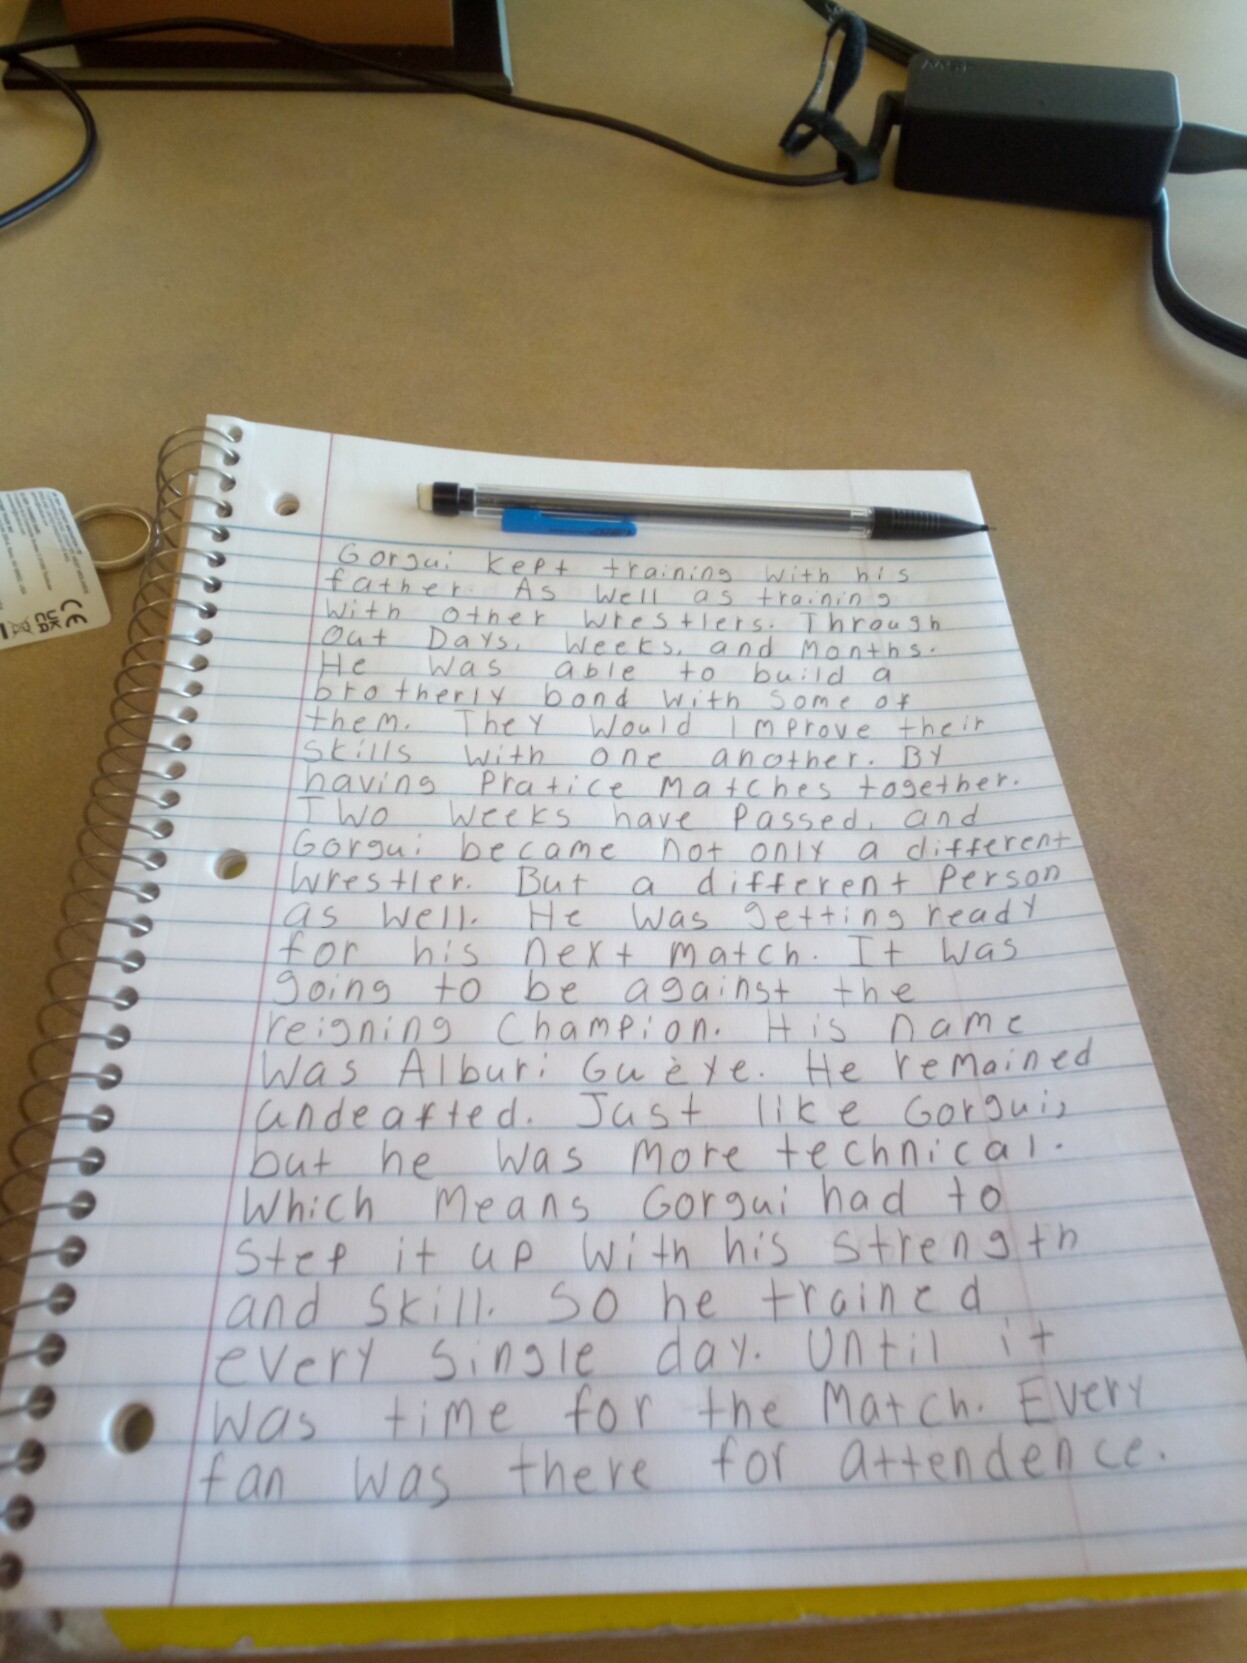 Gorgui kept training with his
father. As well as training
with other wrestlers. Through
out Days, Weeks, and Months.
He was able to build a
brotherly bond with some of
them. They would improve their
skills with one another. By
having pratice matches together.
Two weeks have passed, and
Gorgui became not only a different
wrestler. But a different person
as well. He was getting ready
for his next match. It was
going to be against the
reigning champion. His name
was Alburi Guèye. He remained
undeafted. Just like Gorgui,
but he was more technical.
Which means Gorgui had to
step it up with his strength
and skill. So he trained
every single day. Until it
was time for the match. Every
fan was there for attendence.
CE
UK
CA